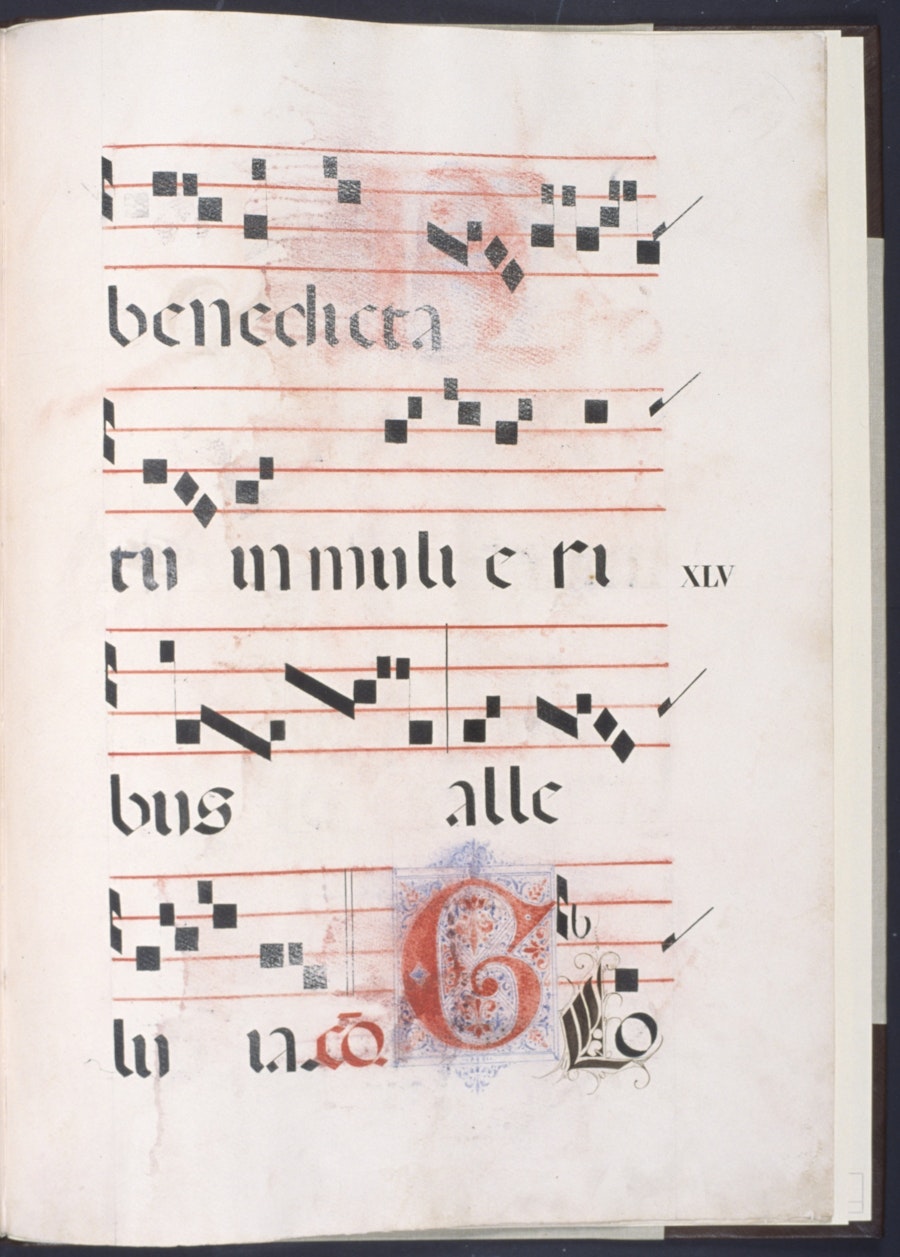 benedicta
tu in muli e ri
XLV
bus alle
lu ia. cō. G Lo